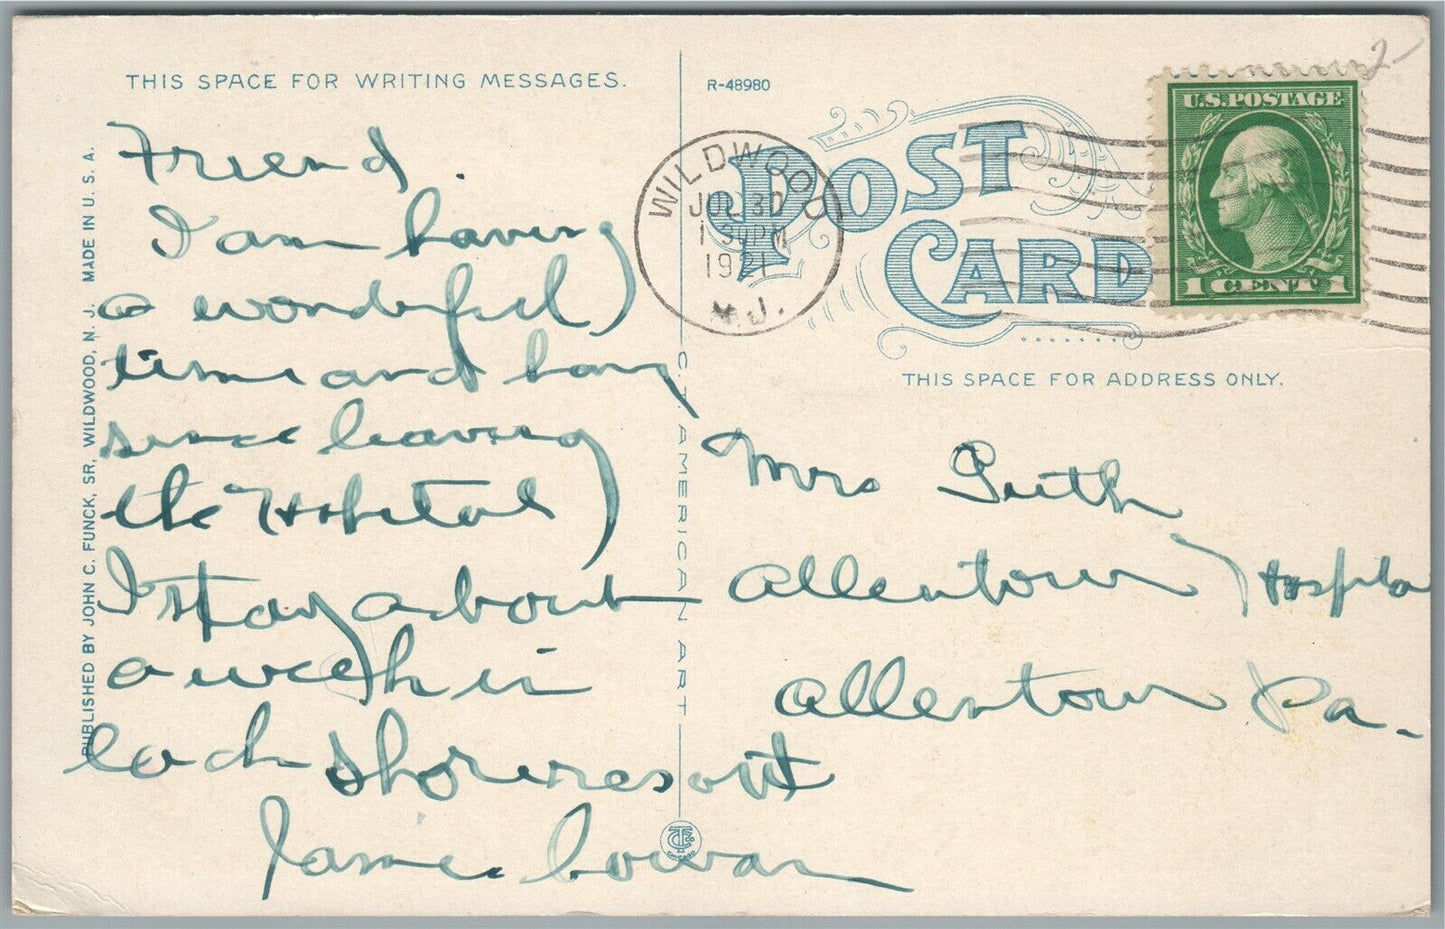 THIS SPACE FOR WRITING MESSAGES.
Friend.
I am having
a wonderful
time and have
since leaving
the Hospital
I stay about
a week in
each shore resort
James Cowan
PUBLISHED BY JOHN C. FUNCK, SR, WILDWOOD, N. J. MADE IN U. S. A.
C. T. AMERICAN ART
CHICAGO
R-48980
POST
CARD
WILDWOOD
JUL 30
1 30 PM
1921
N.J.
U.S. POSTAGE
1 CENT 1
2
THIS SPACE FOR ADDRESS ONLY.
Mrs
Allentown Hospita
Allentown Pa.